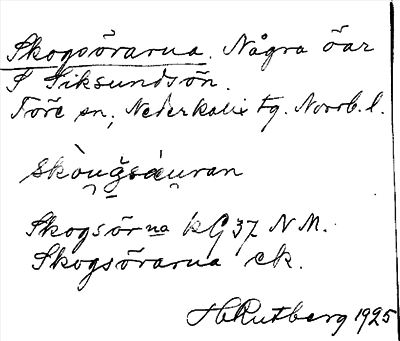 Skogsörarna. Några öar
S Siksundsön.
Töre sn, Nederkalix tg. Norrb. l.
skòu̯ğsáu̯ran
Skogsörna kG 37 N M.
Skogsörarna ek.
H Rutberg 1925